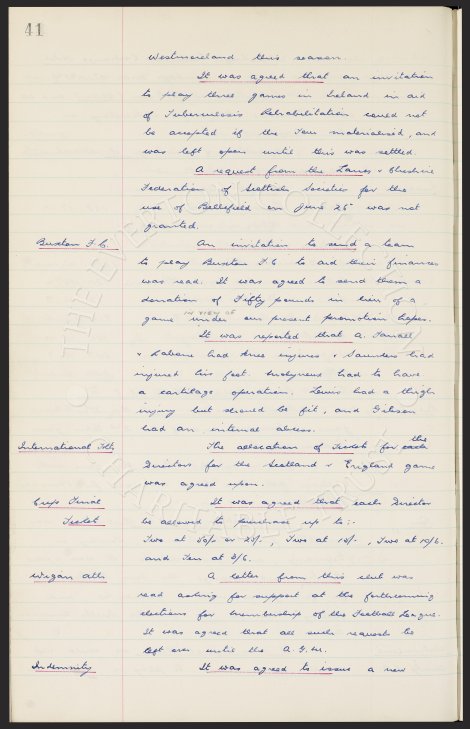 41
Westmoreland this season.
It was agreed that an invitation
to play three games in Ireland in aid
of Tuberculosis Rehabilitation could not
be accepted if the Tour materialised, and
was left open until this was settled.
A request from the Lancs & Cheshire
Federation of Scottish Societies for the
use of Bellefield on June 26 was not
granted.
Buxton F.C. An invitation to send a team
to play Buxton F.C to aid their finances
was read. It was agreed to send them a
donation of Fifty pounds in lieu of a
IN VIEW OF
game under our present promotion hopes.
It was reported that A. Farrell
& Labone had knee injuries & Saunders had
injured his foot had to have
a cartilage operation. Lewis had a thigh
injury but should be fit, and Gibson
had an internal abcess.
International Tkts The allocation of Tickets for each the
Directors for the Scotland v England game
was agreed upon.
Cup Final It was agreed that each Director
Tickets be allowed to purchase up to:-
Two at 50/- or 25/-, Two at 15/-, Two at 10/6.
and Ten at 3/6.
Wigan Ath A letter from this club was
read asking for support at the forthcoming
elections for membership of the Football League.
It was agreed that all such requests be
left over until the A.G.M.
Indemnity It was agreed to issue a new
THE EVERTON COLLECTION
CHARITABLE TRUST